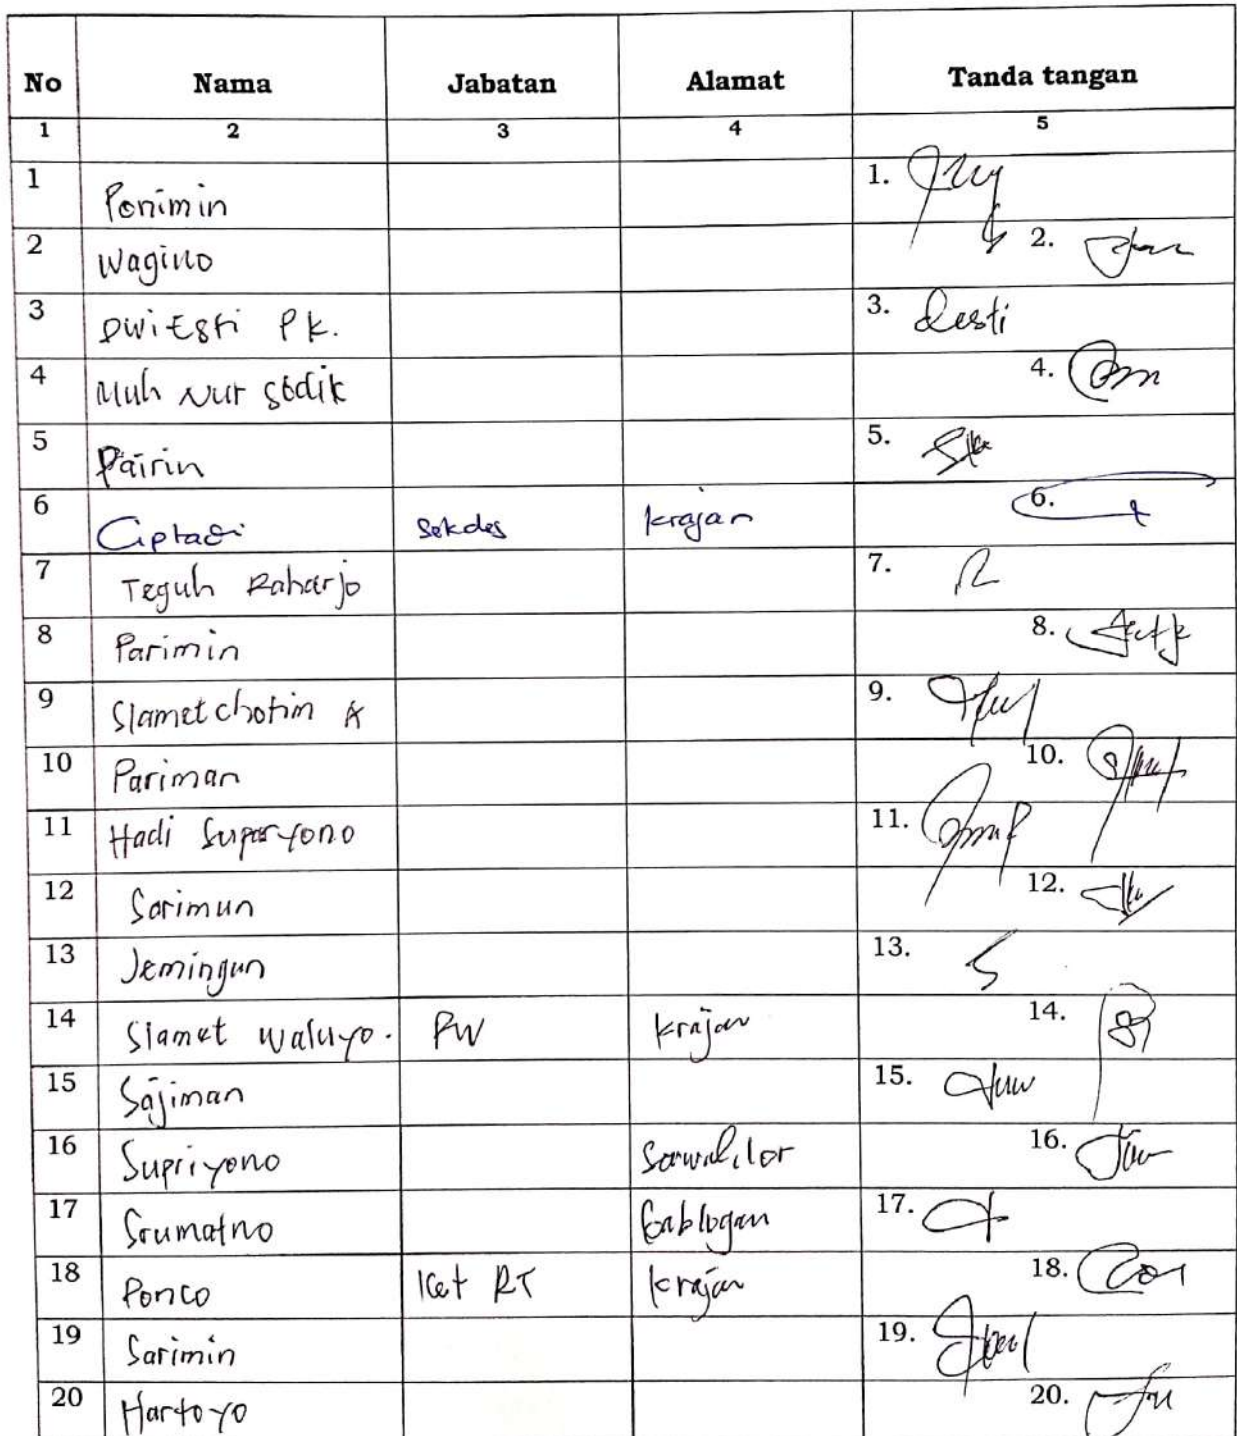 No Nama Jabatan Alamat Tanda tangan
1 2 3 4 5
1 Ponimin 1.
2 Wagino 2.
3 Dwi Esti P K. 3. Desti
4 Muh Nur Sodik 4.
5 Pairin 5.
6 Ciptadi Sekdes krajan 6.
7 Teguh Raharjo 7.
8 Parimin 8.
9 Slamet chotim A 9.
10 Pariman 10.
11 Hadi Suparyono 11.
12 Sarimun 12.
13 Jemingun 13.
14 Slamet waluyo. PW krajan 14.
15 Sajiman 15.
16 Supriyono 16.
17 Srumatno Gablogan 17.
18 Ponco Ket RT krajan 18.
19 Sarimin 19.
20 Hartoyo 20.